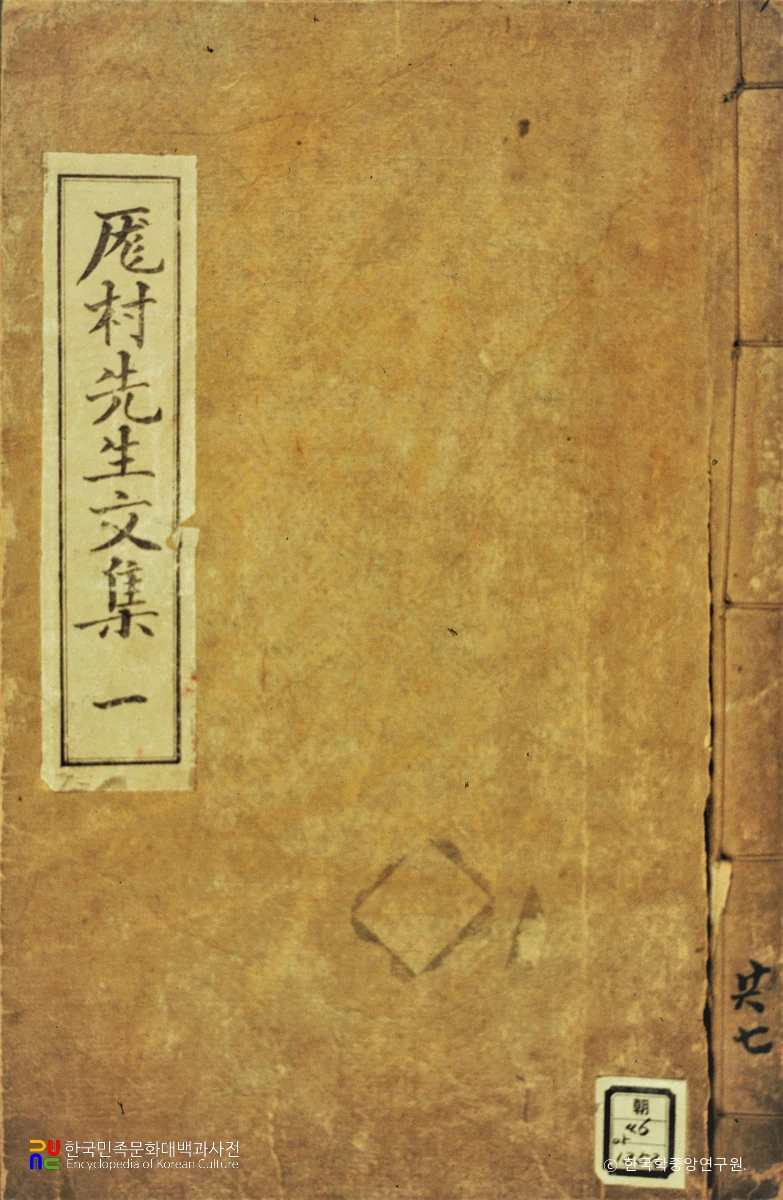 厖村先生文集 一
共七
朝
46
한국민족문화대백과사전
Encyclopedia of Korean Culture
© 한국학중앙연구원.